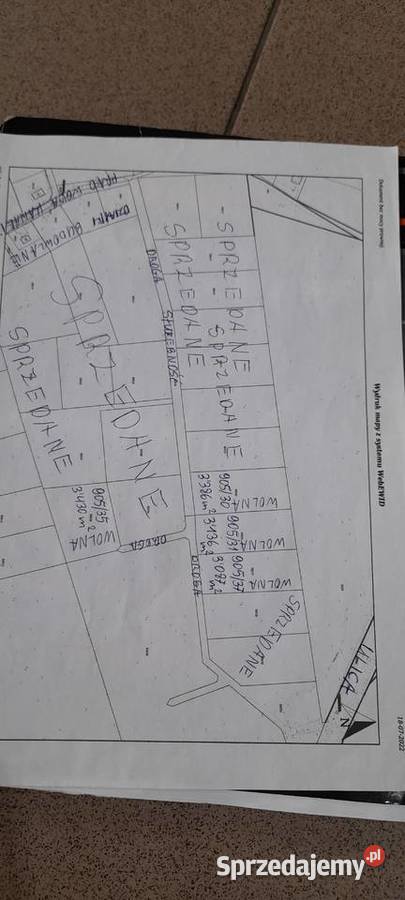 Dokument bez mocy prawnej
Wydruk mapy z systemu WebEWID
18-07-2022
PRĄD WODA KANALI
DZIAŁKI
BUDOWLANE
- SPRZEDANE
- SPRZEDANE
SPRZEDANE
DROGA
SŁUŻEBNOŚĆ
SPRZEDANE
SPRZEDANE
WOLNA
905/30
3386 m²
WOLNA
905/31
3136 m²
WOLNA
905/37
3087 m²
WOLNA
905/35
3430 m²
DROGA
DROGA
SPRZEDANE
ULICA
N
Sprzedajemy.pl